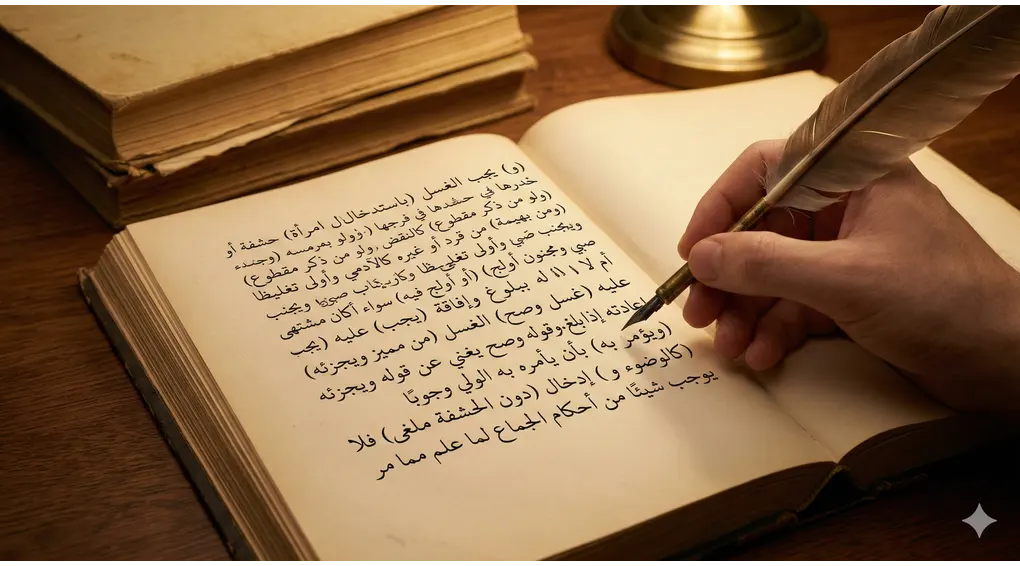 (و) يجب الغسل (باستدخال ل امرأة) حشفة أو
خدرها في حشدها في فرجها (زولو بمرمسه (وجنده
(ولو من ذكر مقطوع) كالنقض، ولو من ذكر مقطوع)
(ومن بهيمة) من قرد أو غيره كالآدمي وأولى تغليظا
ويجنب صَبي وأولى تغليظا ويجنب
صبي ومجنون أولج) (أو أولج فيه) سواء أكان مشتهى
أم لا له ببلوغ وإفاقة (يجب) عليه (يجب
عليه (غسل وصح) الغسل (من مميز ويجزئه)
إعادته إذابلغ.وقوله وصح يغني عن قوله ويجزئه
(ويؤمر به) بأن يأمره به الولي وجوبًا
(كالوضوء و) إدخال (دون الحشفة ملغى) فلا
يوجب شيئًا من أحكام الجماع لما علم مما مر